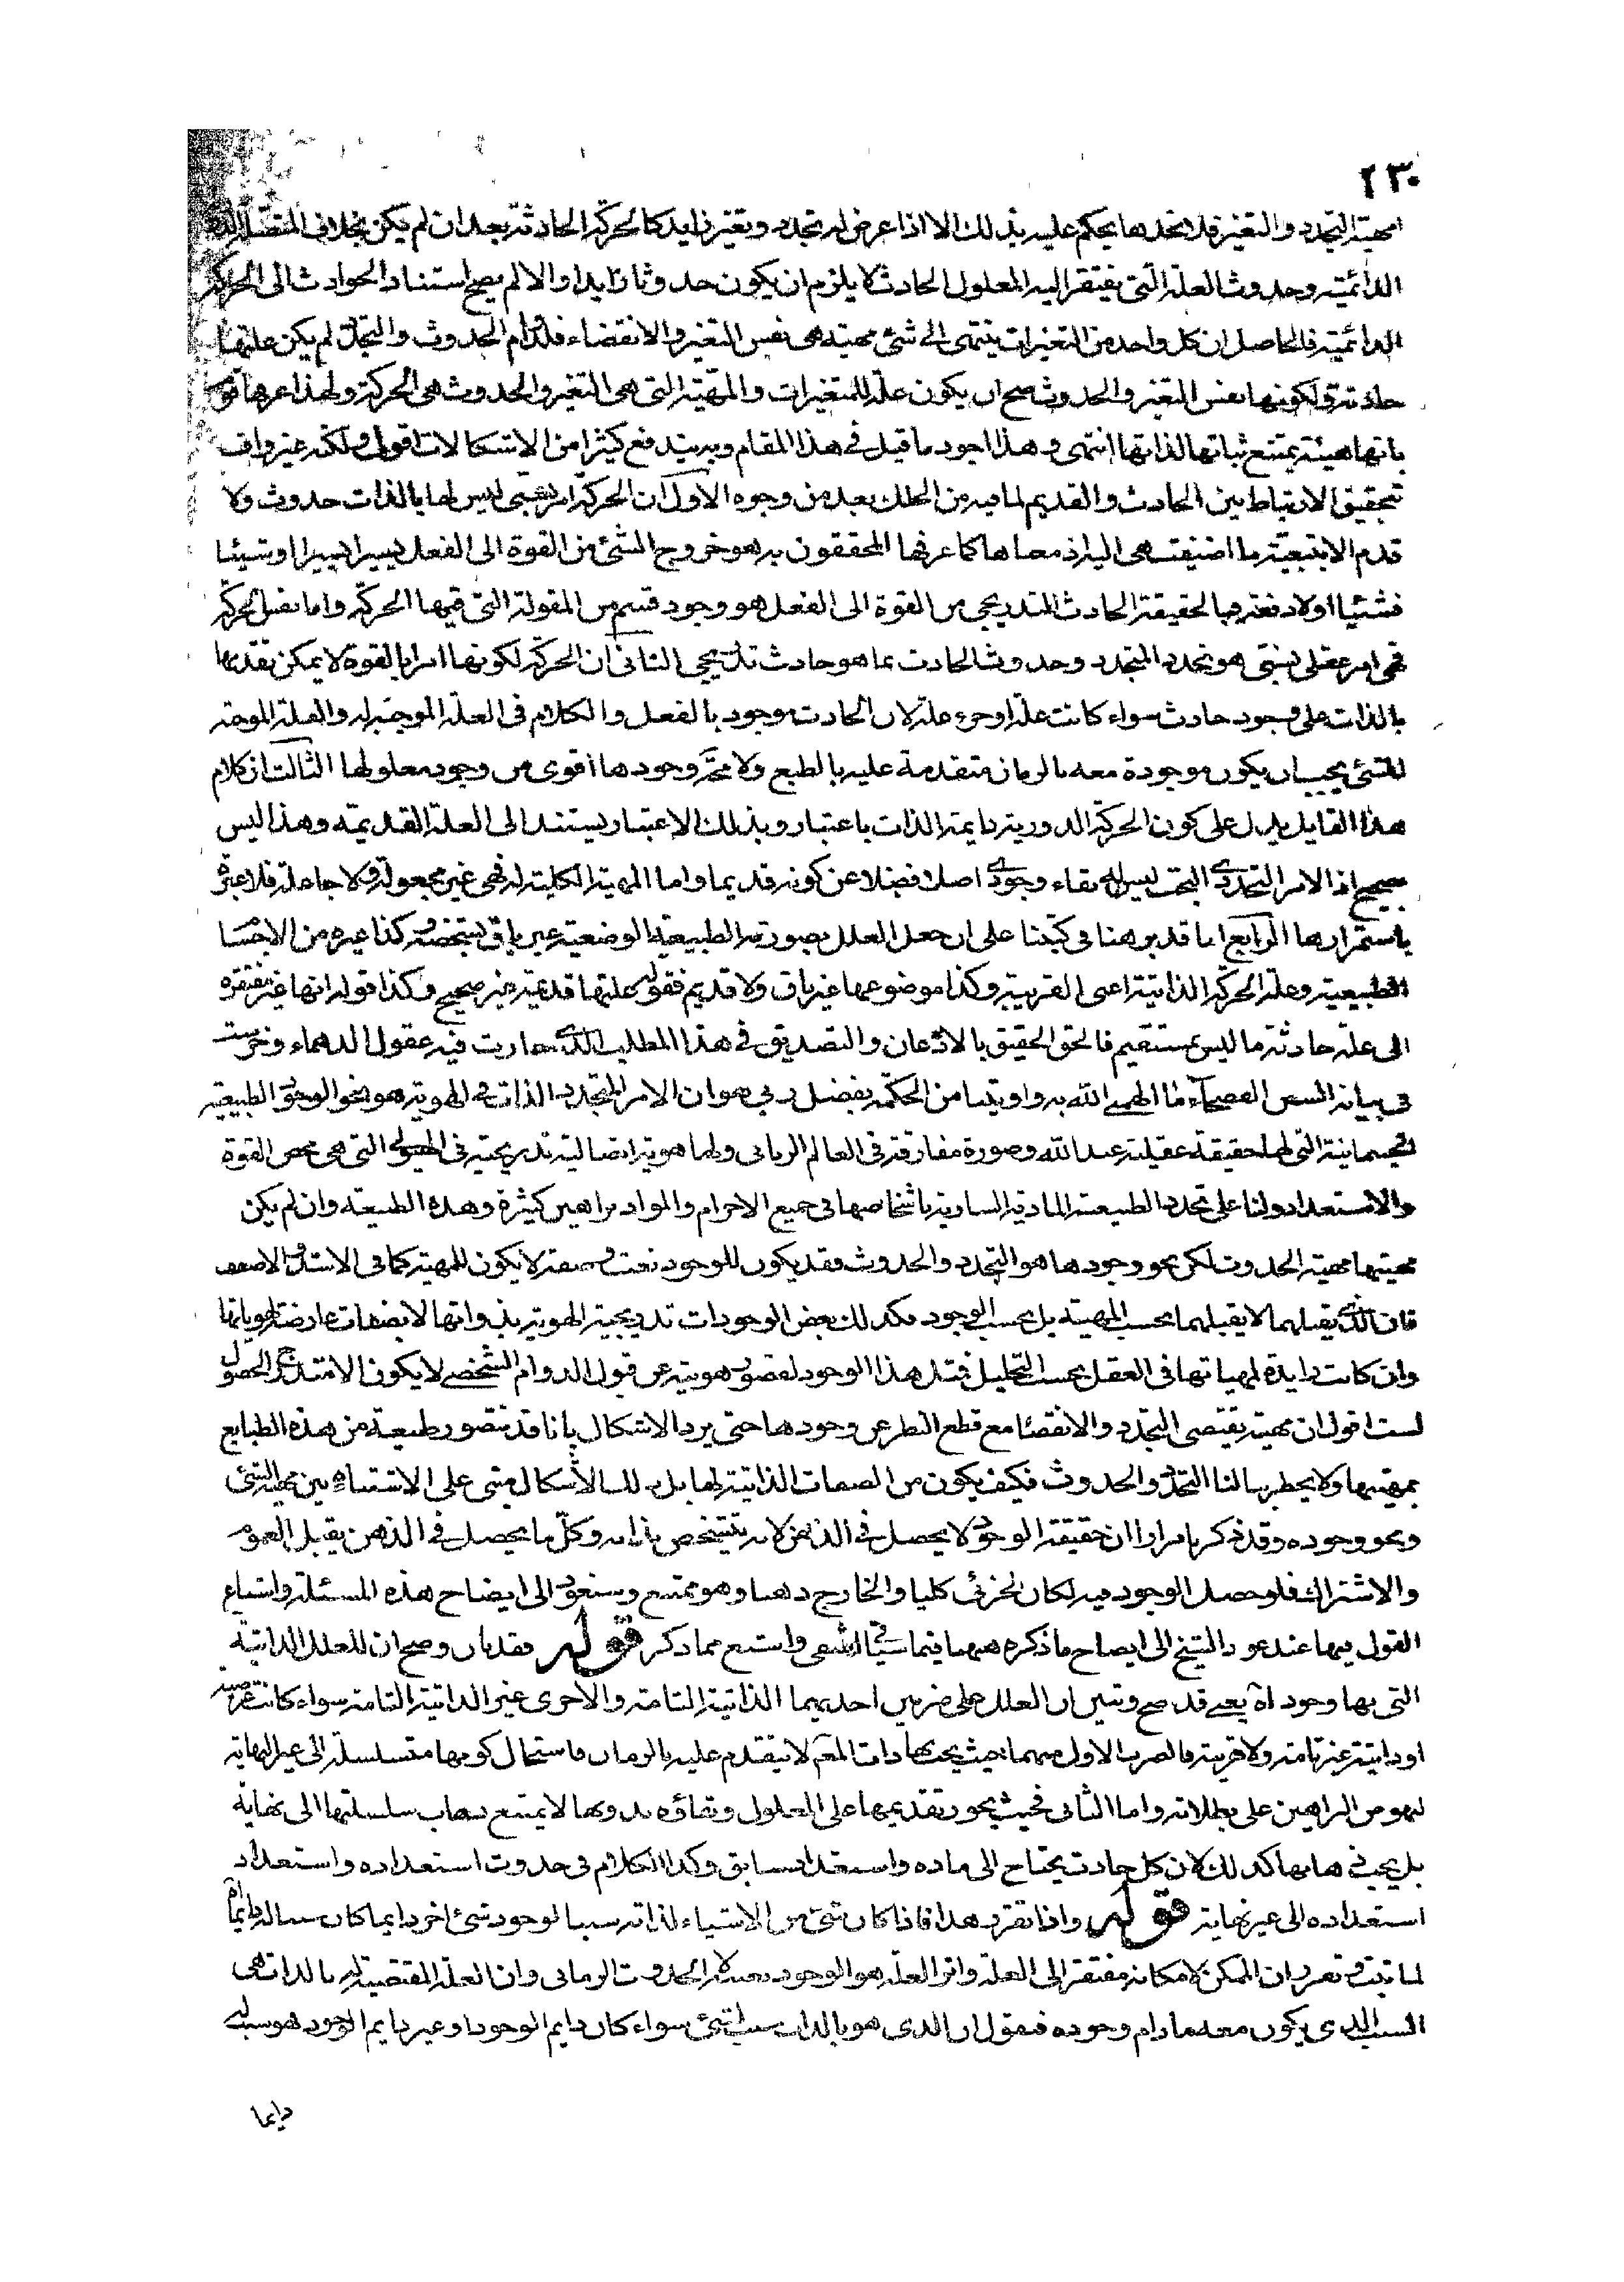 ٢٣٠
مهية التجدد والتغير فلا نجدها يحكم عليه بذلك الا اذا عرض له تجدد وتغير زايد كالحركة الحادثة بعد ان لم يكن بخلاف المتصلة
الدائمية وحدوث العلة التى يفتقر اليه المعلول الحادث لا يلزم ان يكون حدوثا زايدا والا لم يصح استناد الحوادث الى الحركة
الدائمية فالحاصل ان كل واحد من التغيرات ينتهى الى شئ مهيته هى نفس التغير والانقضاء فلدوام الحدوث والتجدد لم يكن علتها
حادثة ولكونها نفس التغير والحدوث صح ان يكون علة للمتغيرات والمهية التى هى التغير والحدوث هى الحركة ولهذا عرفها قوم
بانها هيئة يمتنع ثباتها لذاتها انتهى وهذا اجود ما قيل فى هذا المقام وبه يندفع كثير من الاشكالات اقول ولكنه غير واف
بتحقيق الارتباط بين الحادث والقديم لما فيه من الخلل بعد من وجوه الاول ان الحركة امر نسبى ليس لها بالذات حدوث ولا
قدم الا بتبعية ما اضيفت هى اليه اذ معناها كما عرفها المحققون به هو خروج الشئ من القوة الى الفعل يسيرا يسيرا او شيئا
فشيئا او لا دفعة فبالحقيقة الحادث التدريجى من القوة الى الفعل هو وجود قسم من المقولة التى فيها الحركة واما نفس الحركة
فهى امر عقلى نسبى هو تجدد المتجدد وحدوث الحادث بما هو حادث تدريجى الثانى ان الحركة لكونها امرا بالقوة لا يمكن تقدمها
بالذات على وجود حادث سواء كانت علة او جزء علة لان الحادث موجود بالفعل والكلام فى العلة الموجبة له والعلة الموجبة
للشئ يجب ان يكون موجودة معه بالزمان متقدمة عليه بالطبع ولا محة وجودها اقوى من وجود معلولها الثالث ان كلام
هذا القايل يدل على كون الحركة الدورية دايمة الذات باعتبار وبذلك الاعتبار يستند الى العلة القديمة وهذا ليس
بصحيح اذ الامر التجددى البحت ليس له بقاء وجودى اصلا فضلا عن كونه قديما واما المهية الكلية له فهى غير مجعولة ولا جاعلة فلا عبرة
باستمرارها الرابع انا قد برهنا فى كتبنا على ان جعل الفلك بصورته الطبيعية الوضعية غير باق بشخصه وكذا غيره من الاجسام
الطبيعية وعلة الحركة الذاتية اعنى القريبة وكذا موضوعها غير باق ولا قديم فقوله علتها قديمة غير صحيح وكذا قوله انها غير مفتقرة
الى علة حادثة ما ليس بمستقيم فالحق الحقيق بالاذعان والتصديق فى هذا المطلب الذى حارت فيه عقول الدهماء وخرست
فى بيانه السن الفصحاء ما الهمنى الله به واوتينا من الحكمة بفضل ربى هو ان الامر المتجدد الذات فى الهوية هو نحو الوجود الطبيعية
الجسمانية التى لها حقيقة عقلية عند الله وصورة مفارقة فى العالم الربانى ولها هوية اتصالية تدريجية فى الهيولى التى هى محض القوة
والاستعداد ولنا على تجدد الطبيعة المادية السارية باشخاصها فى جميع الاجرام والمواد براهين كثيرة وهذه الطبيعة وان لم يكن
مهيتها مهية الحدوث لكن نحو وجودها هو التجدد والحدوث فقد يكون للوجود نعت وصفة لا يكون للمهية كما فى الاشد والاضعف
فان الذى يقبلهما لا يقبلهما بحسب المهية بل بحسب الوجود فكذلك بعض الوجودات تدريجية الهوية بذواتها لا بصفات عارضة لهوياتها
وان كانت زايدة لمهياتها فى العقل بحسب التحليل فمثل هذا الوجود لقصور هويته عن قبول الدوام الشخصى لا يكون الا متدرج الحصول
لست اقول ان مهيته يقتضى التجدد والانقضاء مع قطع النظر عن وجودها حتى يرد الاشكال بانا قد نتصور طبيعة من هذه الطبايع
بمهيتها ولا يخطر ببالنا التجدد والحدوث فكيف يكون من الصفات الذاتية لها بل ذلك الاشكال مبنى على الاشتباه بين مهية الشئ
ونحو وجوده وقد ذكر نا مرارا ان حقيقة الوجود لا يحصل فى الذهن لانه يتشخص بذاته وكل ما يحصل فى الذهن يقبل العموم
والاشتراك فلو حصل الوجود فيه لكان الجزئى كليا والخارج ذهنا وهو ممتنع وسنعود الى ايضاح هذه المسئلة واشباع
القول فيها عند عود الشيخ الى ايضاح ما ذكره ههنا فيما سيأتى واستمع مما ذكر قوله فقد بان وصح ان للعلل الذاتية
التى بها وجود اه يعنى قد صح وتبين ان العلل على ضربين احديهما الذاتية التامة والاخرى غير الذاتية التامة سواء كانت عرضية
او ذاتية غير تامة ولا قريبة فالضرب الاول منهما حيث يجب بها ذات المعلول لا يتقدم عليه بالزمان فاستحال كونها متسلسلة الى غير النهاية
لنهوض البراهين على بطلانه واما الثانى فحيث يجوز تقدمها على المعلول وبقاؤه بدونها لا يمتنع ذهاب سلسلتها الى نهاية
بل يجب ذهابها كذلك لان كل حادث يحتاج الى مادة واستعداد سابق وكذا الكلام فى حدوث استعداده واستعداد
استعداده الى غير نهاية قوله واذا تقرر هذا فاذا كان شئ من الاشياء لذاته سببا لوجود شئ اخر دايما كان سببا له دايما اه
لما ثبت وتقرر ان الممكن لامكانه مفتقر الى العلة واثر العلة هو الوجود نفسه لا الحدوث الزمانى وان العلة المقتضية له بالذات هى
السبب الذى يكون معه ما دام وجوده فنقول ان الذى هو بالذات سبب لشئ سواء كان دايم الوجود او غير دايم الوجود هو سبب له
دايما